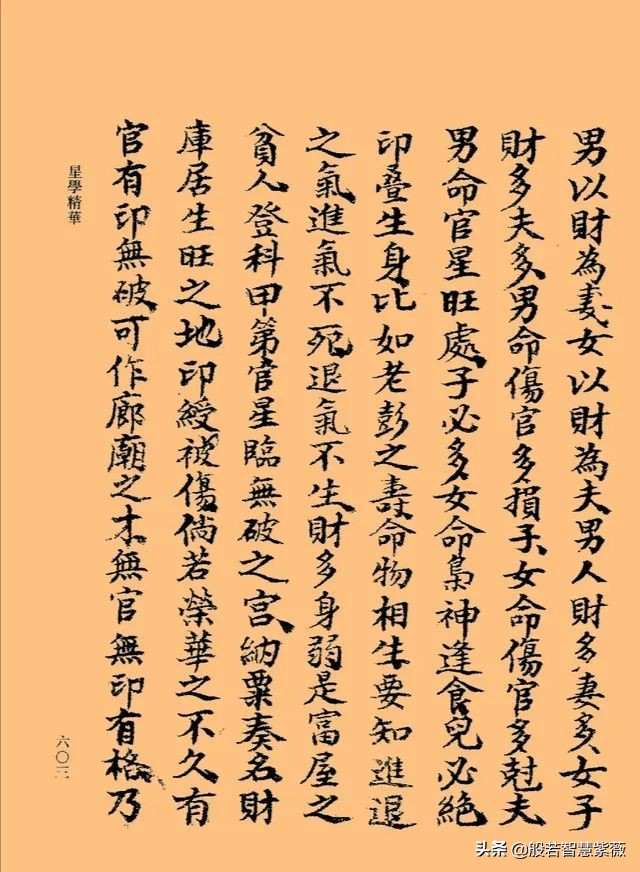 男以財為妻女以財為夫男人財多妻多女子
財多夫多男命傷官多損子女命傷官多尅夫
男命官星旺處子必多女命梟神逢食兒必絕
印疊生身比如老彭之壽命物相生要知進退
之氣進氣不死退氣不生財多身弱是富屋之
貧人登科甲第官星臨無破之宮納粟奏名財
庫居生旺之地印綬被傷倘若榮華之不久有
官有印無破可作廊廟之才無官無印有格乃
星學精華
六〇三
头条 @般若智慧紫薇